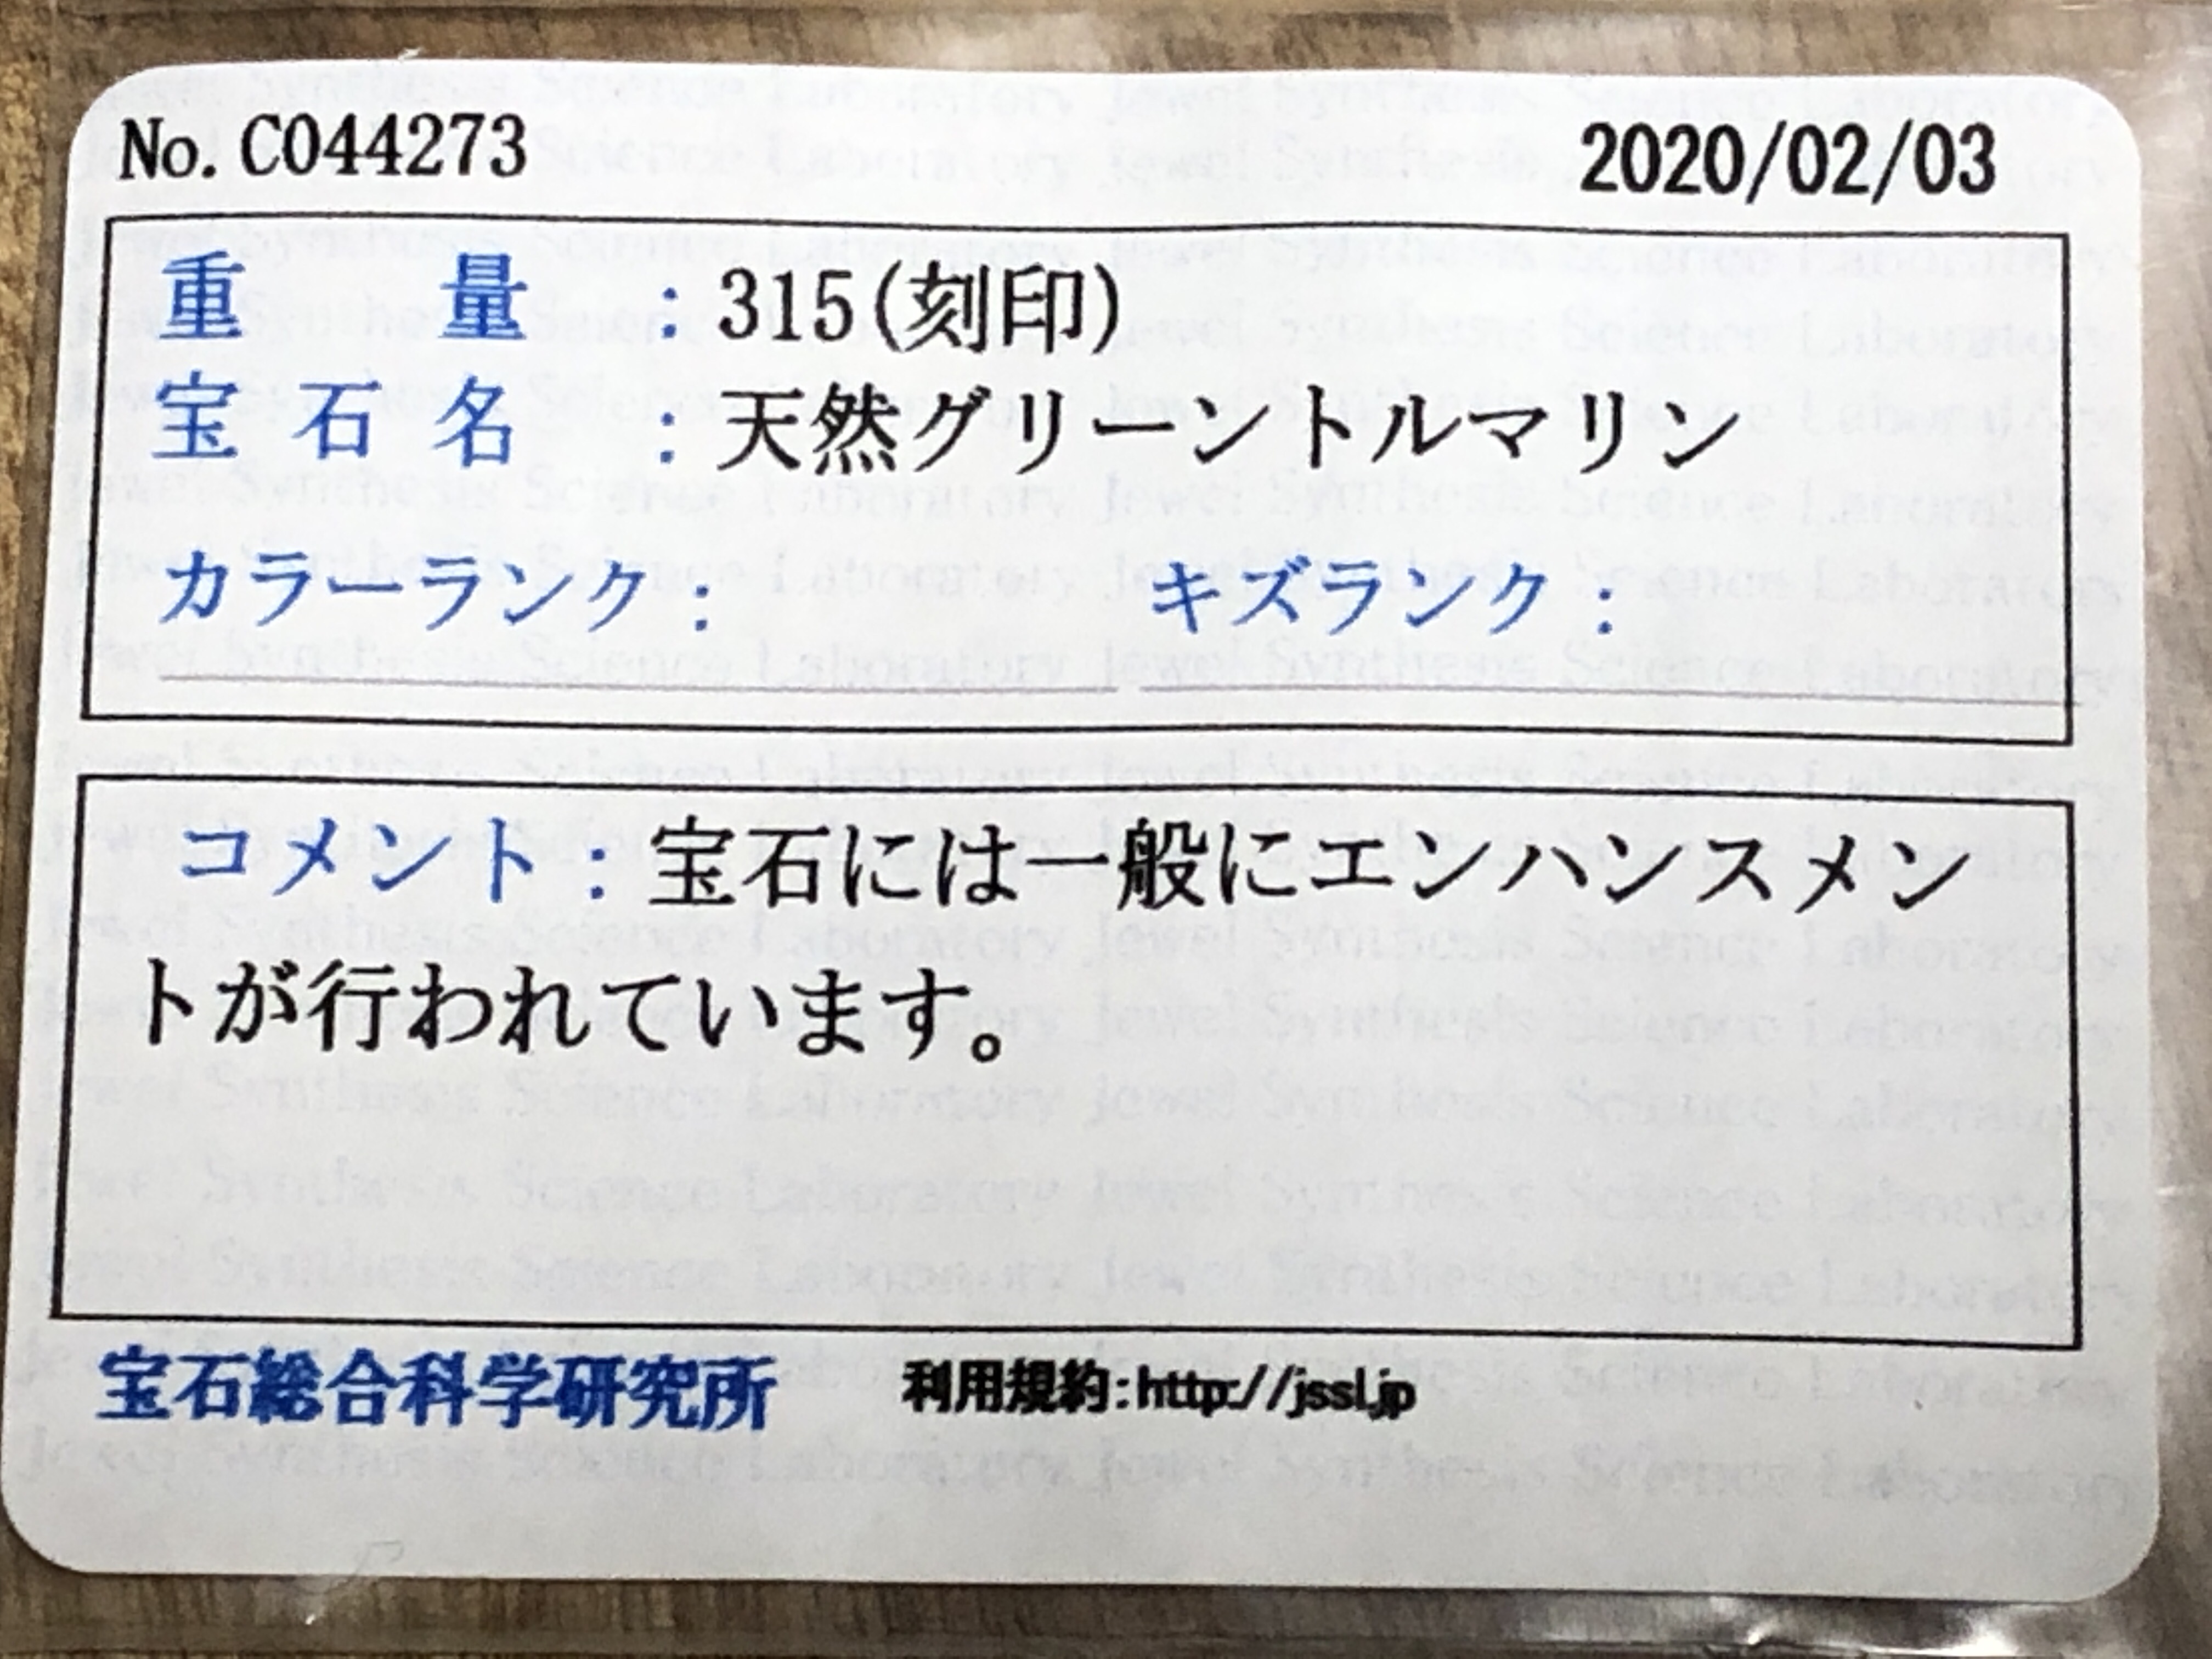 No. C044273 2020/02/03
重 量 : 315(刻印)
宝 石 名 : 天然グリーントルマリン
カラーランク : キズランク :
コメント : 宝石には一般にエンハンスメン
トが行われています。
宝石総合科学研究所 利用規約:http://jssl.jp
Jewel Synthesis Science Laboratory Jewel Synthesis Science Laboratory